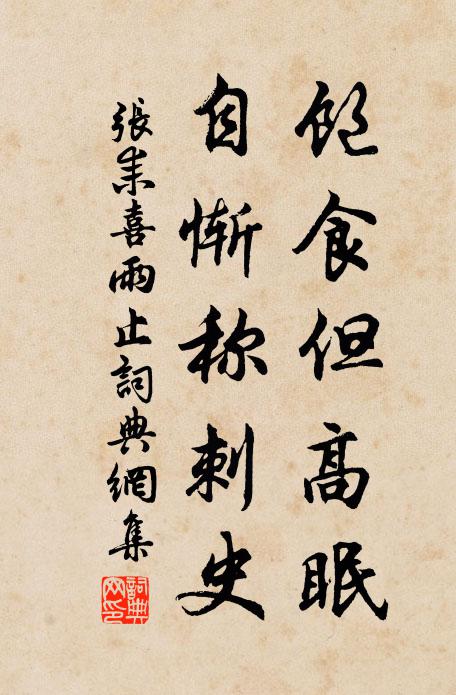 飽食但高眠
自慚称刺史
張耒喜雨止詞典網集
詞典网印